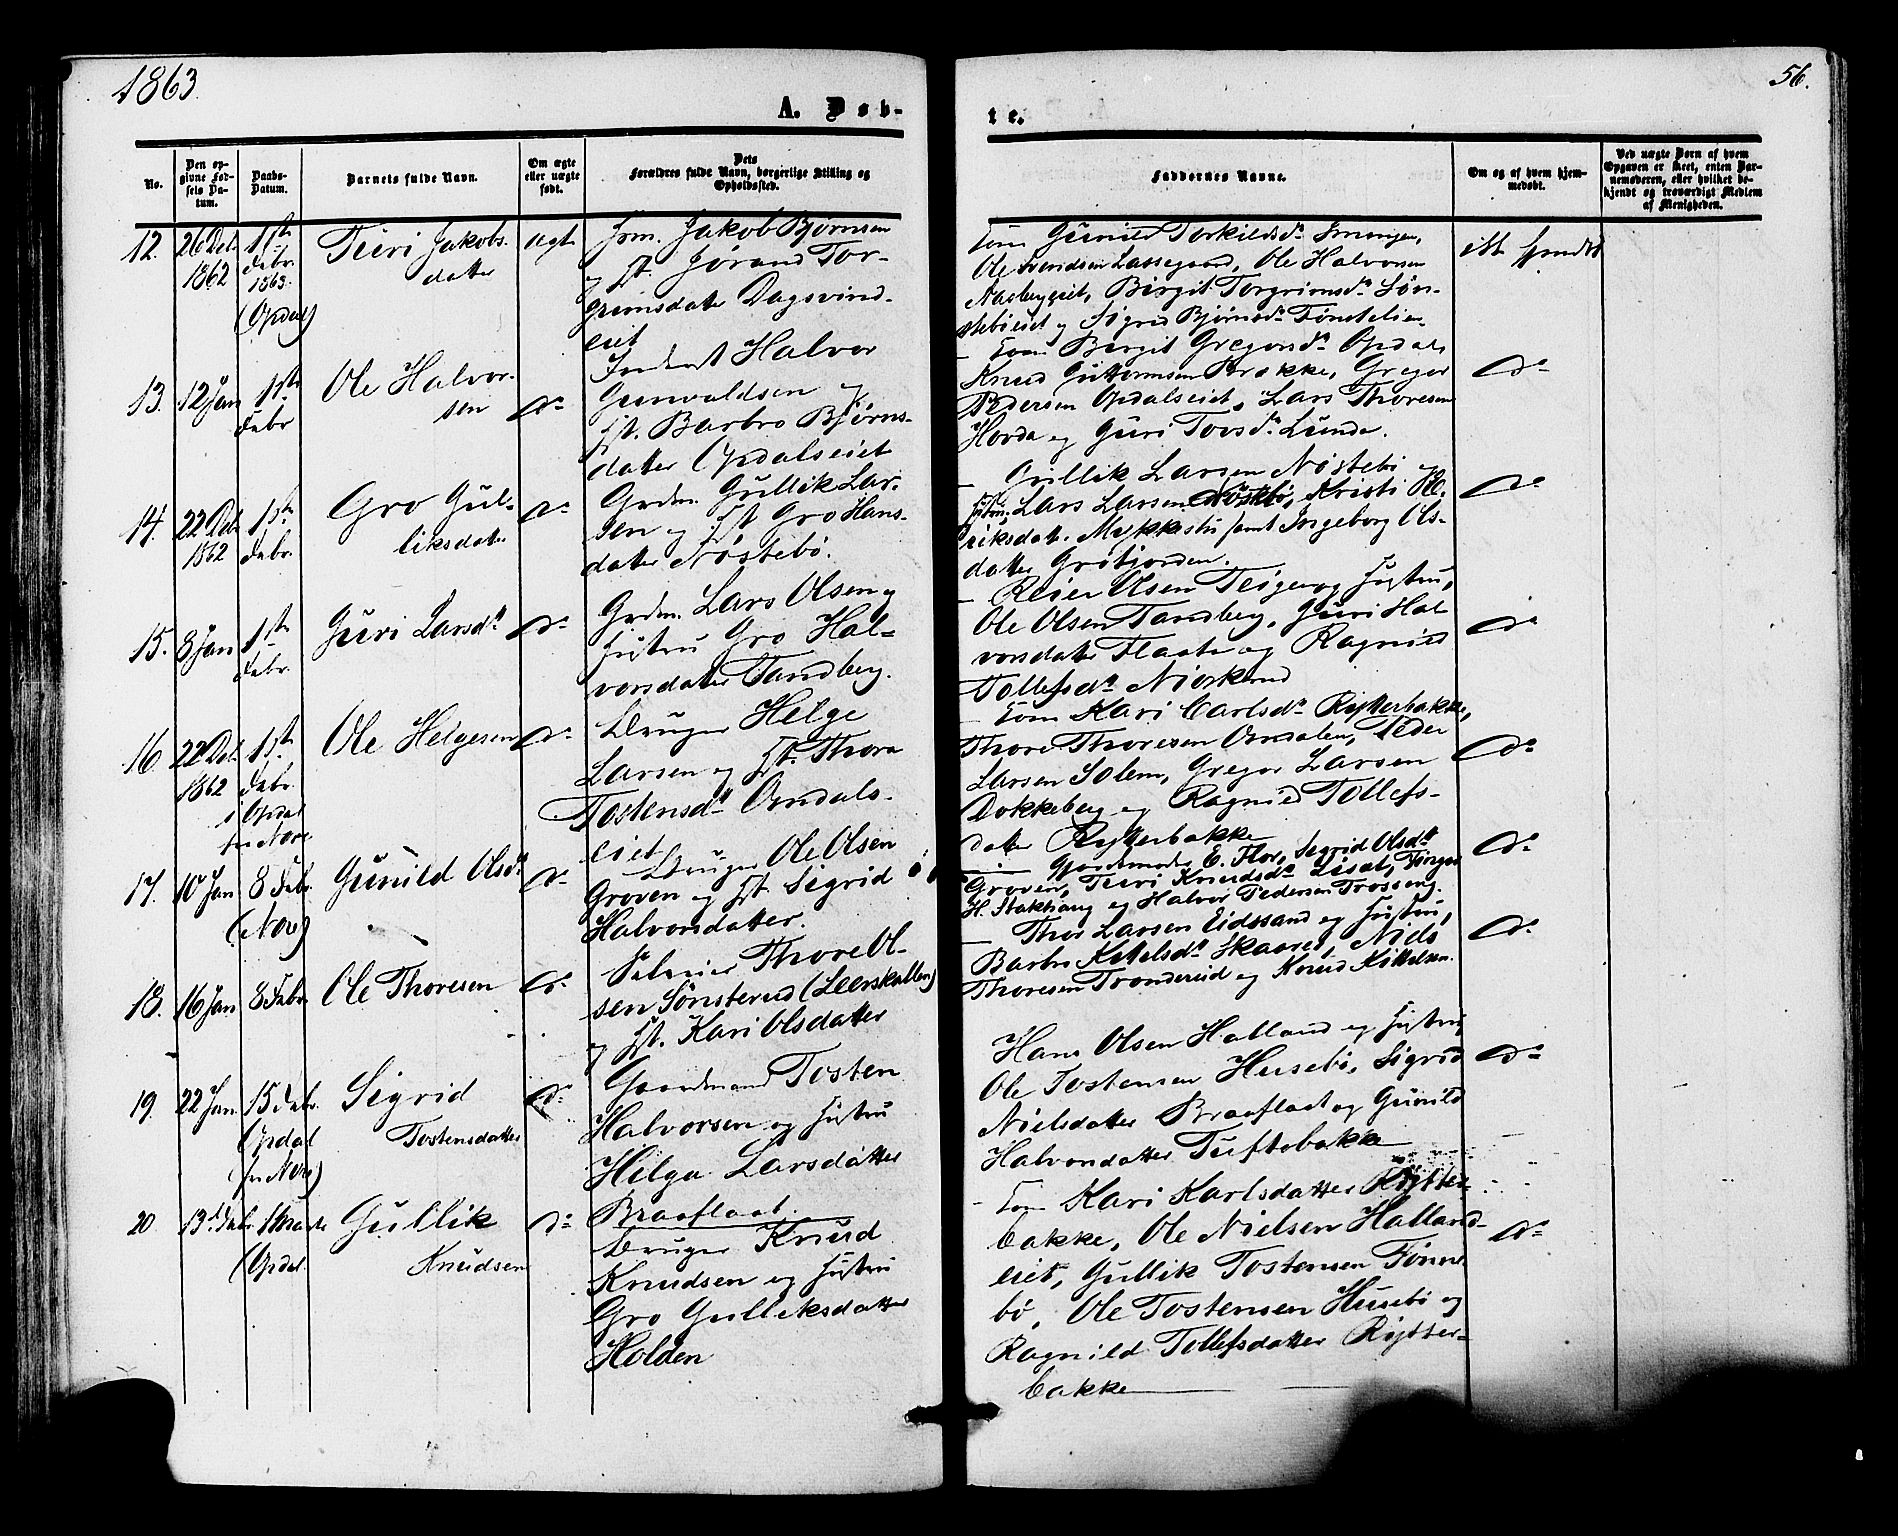 1863.
56.
A. Døb-
te.
No.
Den op-
givne Fød-
sels Da-
tum.
Daabs-
Datum.
Barnets fulde Navn.
Om ægte
eller uægte
født.
Dets
Forældres fulde Navn, borgerlige Stilling og
Opholdssted.
Faddernes Navne.
Om og af hvem hjem-
medøbt.
Ved uægte Børn af hvem
Opgaven er skeet, enten Bar-
nemoderen, eller hvilket be-
kjendt og troværdigt Medlem
af Menigheden.
12.
26 Dcb.
1862
1ste
Febr.
1863.
(Opdal)
Turi Jakobs-
datter
ægt
Jakob Bjørnsen
og Jørand Tor-
grimsdatter Dagsvind-
eiet
Gunild Torkildsdr
Ole Halvorsen
Birgit Torgrimsdr Søn-
stebøeiet og Sigrid Bjørnsdr
13.
12 Jan
1ste
Febr
Ole Halvor-
sen
do
Halvor
Gunvaldsen og
Barbro Bjørns-
datter Opdalseiet
Birgit Gregorsdr Opdal,
Knud Guttormsen Brække, Gregor
Pedersen Opdalseiet, Lars Thoresen
Hovda og Guri Torsdr Lunde.
do
14.
22 Dcb
1862
1ste
Febr.
Gro Gul-
liksdatr
do
Grdm. Gullik Lar-
sen og Gro Hans-
datter Nøstebø.
Gullik Larsen Nøstebø og
Hustru, Lars Larsen Nøstebø, Kristi He-
riksdatr. Mykkestu samt Ingeborg Ols-
datter Grøtjorden.
do
15.
8 Jan
1ste
Febr.
Guri Larsdr
do
Grdm. Lars Olsen og
Hustru Gro Hal-
vorsdatter Tandberg.
Reier Olsen Teigen og Hustru,
Ole Olsen Tandberg, Guri Hal-
vorsdatter Flaata og Ragnild
Tollefsdr Niørkerud
do
16.
22 Dcb.
1862
1ste
Febr.
i
Opdal
for Nore
Ole Helgesen
do
Bruger Helge
Larsen og Thora
Tostensdr Omdals-
eiet
Kari Carlsdr Rytterbakke,
Thore Thoresen Omdalen, Peder
Larsen Solem, Gregor Larsen
Dokkeberg og Ragnild Tollefs-
datter Rytterbakke
do
17.
10 Jan
8 Febr.
(Nore)
Gunild Olsdr
do
Bruger Ole Olsen
Groven og Sigrid
Halvorsdatter.
Gjordemoder E. Flor, Sigrid Olsdr
Groven, Turi Knudsdr Lisdt,
H. Stakhaug og Halvor Pedersen Trosseng.
do
18.
16 Jan
8 Febr
Ole Thoresen
do
Thore Ol-
sen Sønsterud (Leerskallen)
og Kari Olsdatter
Thor Larsen Eidssand og Hustru,
Barbro Ketelsdr Skaaret, Nids
Thoresen Trondereid og Knud Kittelsen.
do
19.
22 Jan.
15 Febr.
(Opdal
for Nore)
Sigrid
Tostensdatter
do
Gaardmand Tosten
Halvorsen og Hustru
Helga Larsdatter
Braaflaat.
Hans Olsen Halland og Hustru,
Ole Tostensen Husebø, Sigrid
Nielsdatter Braaflaat og Gunild
Halvorsdatter Tuftebakke
do
20.
13 Febr
1 Marts
(Opdal.
Gullik
Knudsen
do
Bruger Knud
Knudsen og Hustru
Gro Gulliksdatter
Holden
Kari Karlsdatter Rytter-
bakke, Ole Nielsen Halland-
eiet, Gullik Tostensen Fønne-
bø, Ole Tostensen Husebø og
Ragnild Tollefsdatter Rytter-
bakke
do